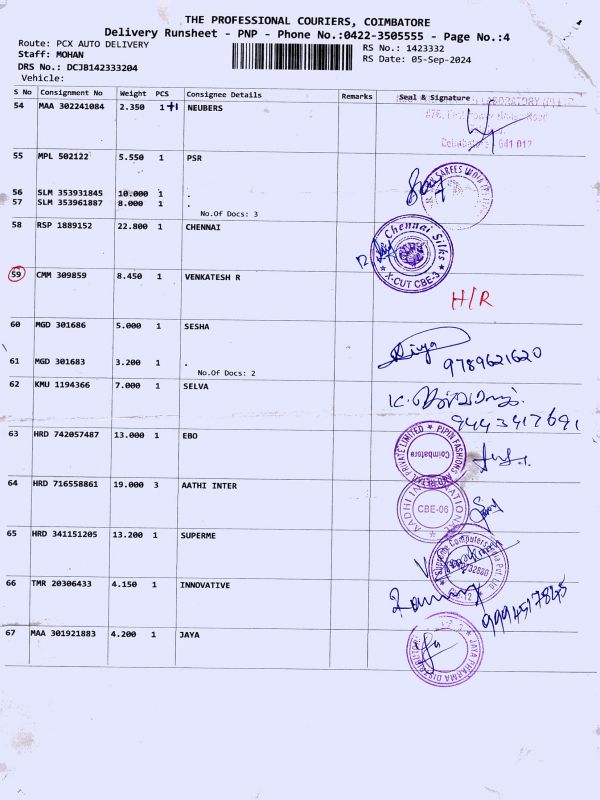 THE PROFESSIONAL COURIERS, COIMBATORE
Delivery Runsheet - PNP - Phone No.:0422-3505555 - Page No.:4
Route: PCX AUTO DELIVERY
RS No.: 1423332
Staff: MOHAN
RS Date: 05-Sep-2024
DRS No.: DCJB142333204
Vehicle:
S No Consignment No Weight PCS Consignee Details Remarks Seal & Signature
54 MAA 302241084 2.350 1 +1 NEUBERS
Coimbatore - 641 012
55 MPL 502122 5.550 1 PSR
SAREES INDIA
56 SLM 353931845 10.000 1 .
57 SLM 353961887 8.000 1 .
No.Of Docs: 3
58 RSP 1889152 22.800 1 CHENNAI
Chennai Silks
X-CUT CBE-3
59 CMM 309859 8.450 1 VENKATESH R
H/R
60 MGD 301686 5.000 1 SESHA
9789621620
61 MGD 301683 3.200 1 .
No.Of Docs: 2
62 KMU 1194366 7.000 1 SELVA
9443417691
63 HRD 742057487 13.000 1 EBO
PIPIN FASHIONS AND RETAIL PRIVATE LIMITED
Coimbatore
64 HRD 716558861 19.000 3 AATHI INTER
AADHI INTERNATIONAL
CBE-06
65 HRD 341151205 13.200 1 SUPERME
Supreme Computers India Pvt Ltd
66 TMR 20306433 4.150 1 INNOVATIVE
9994517845
67 MAA 301921883 4.200 1 JAYA
JAYA PHARMA DISTRIBUTORS